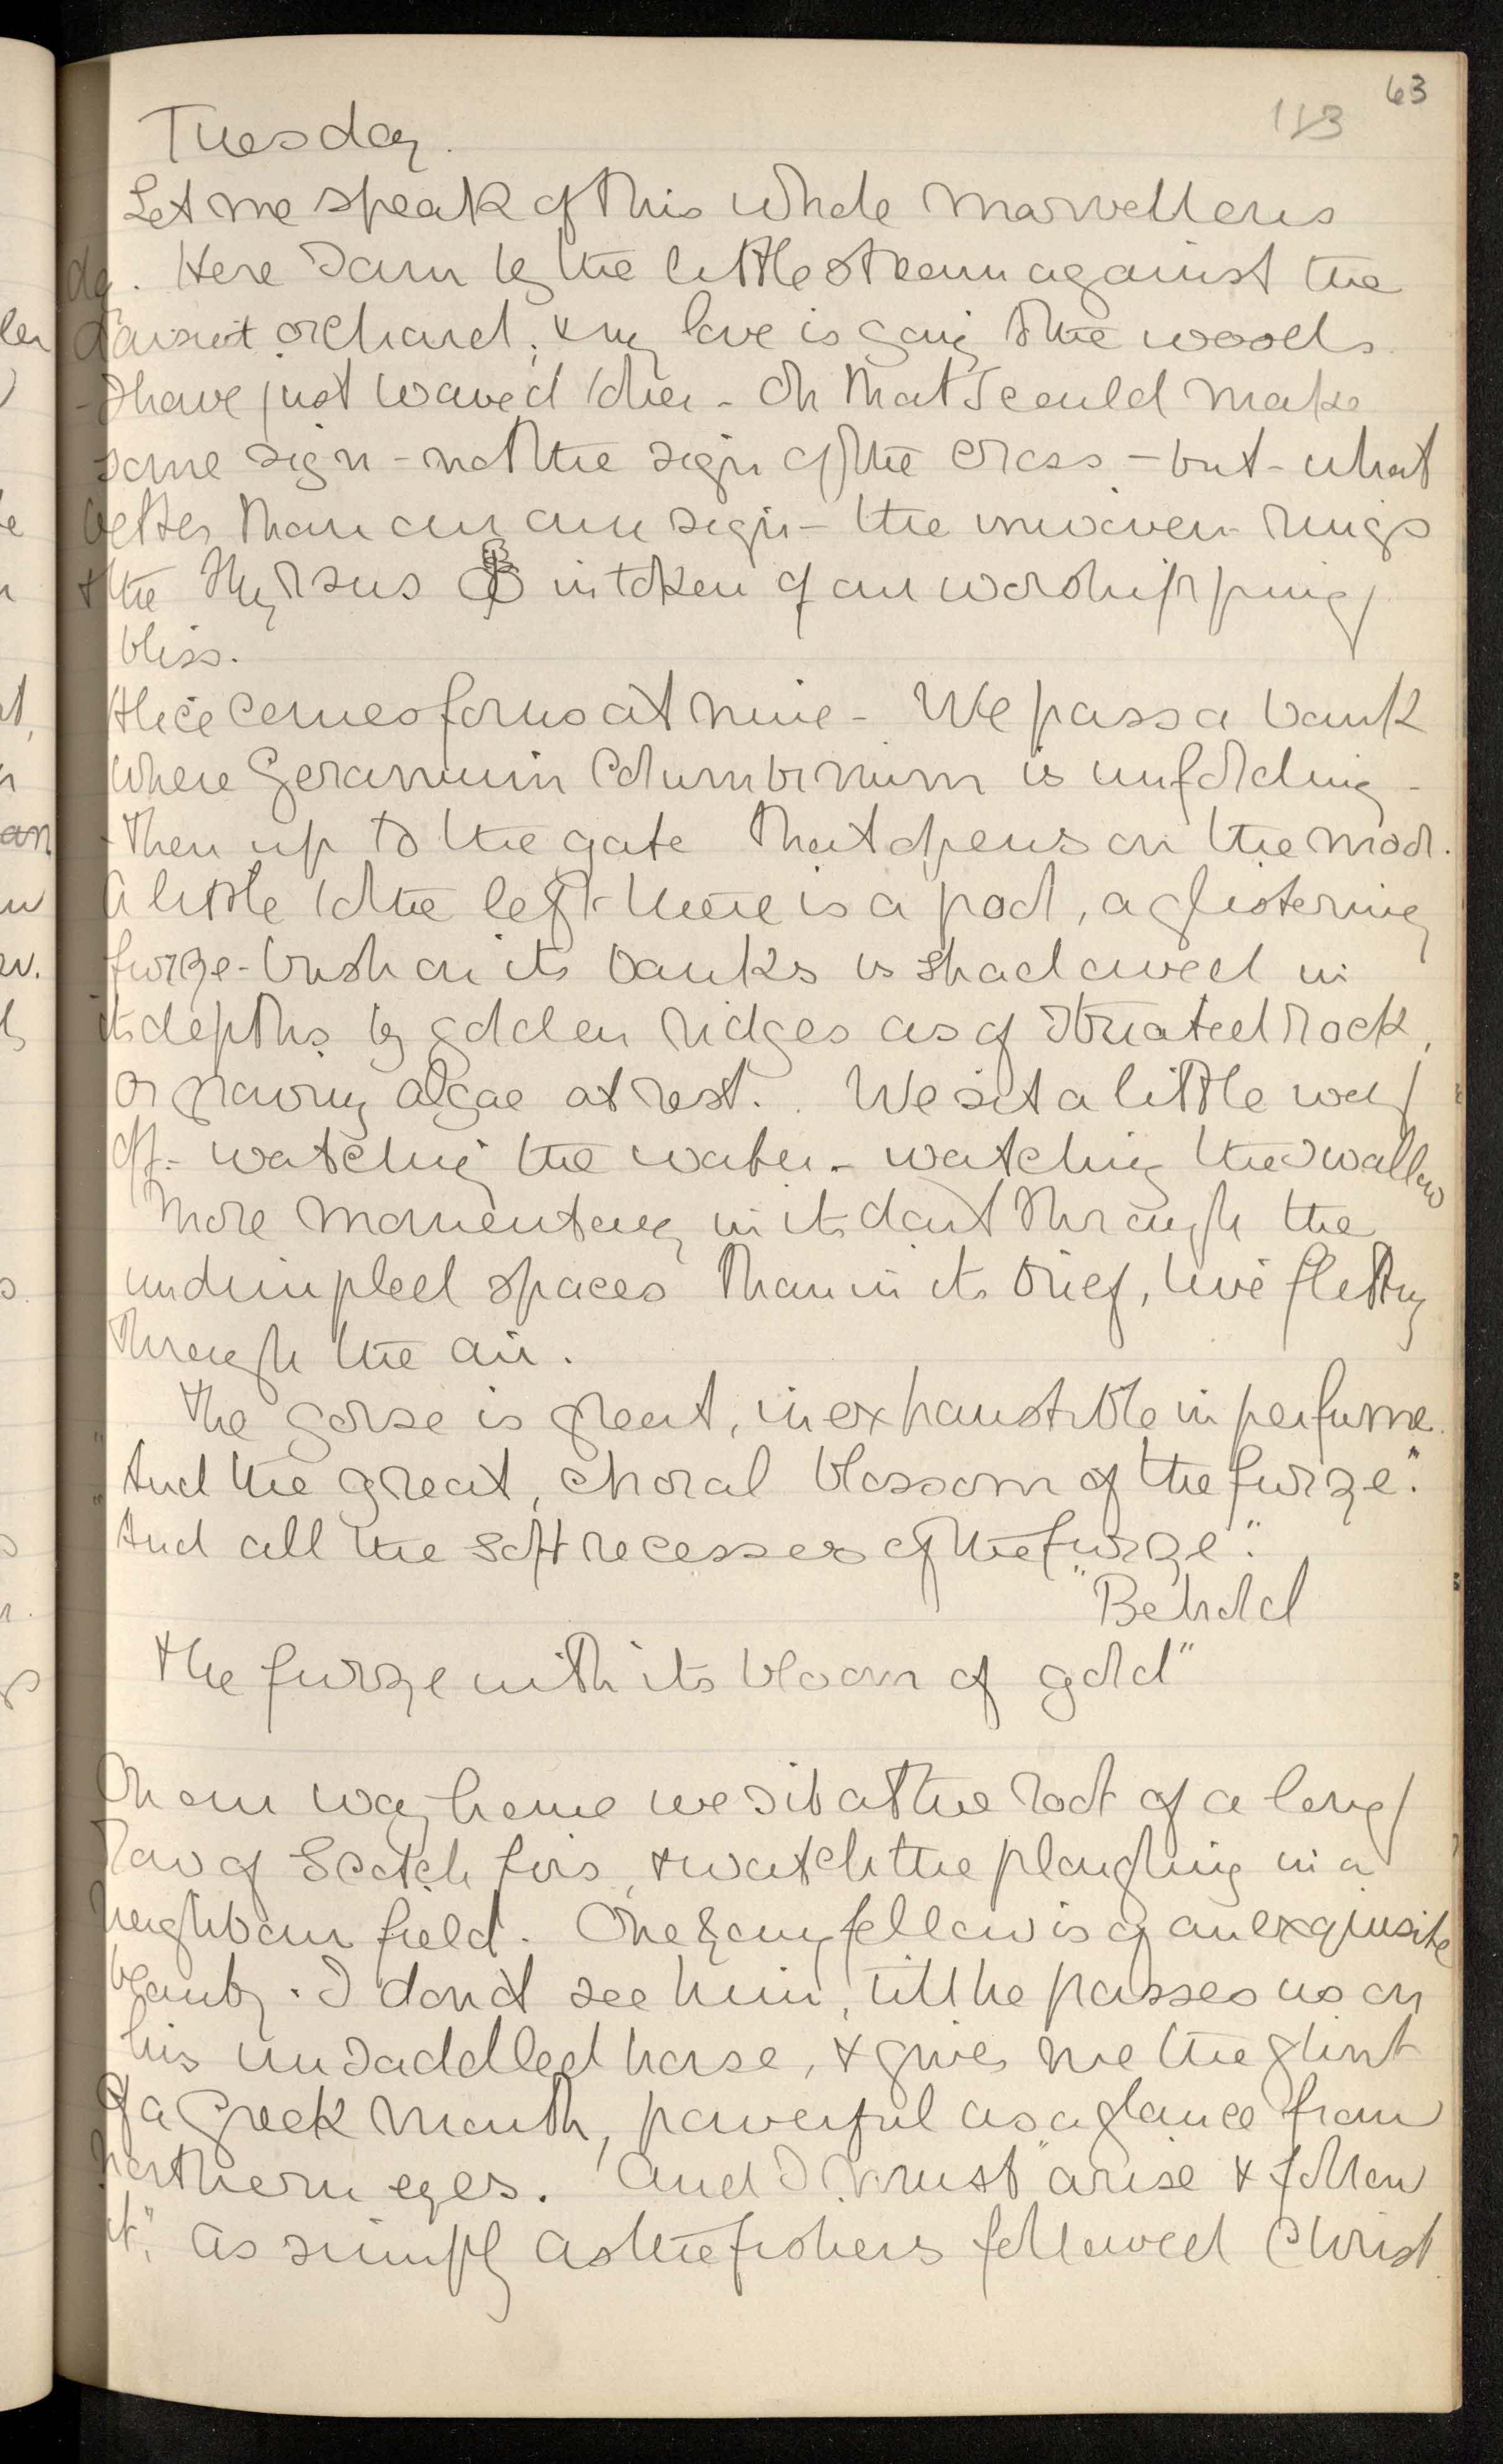 63
113
Tuesday.
Let me speak of this whole marvellous
day. Here I am by the little stream against the
orchard; & my love is going to the woods
- I have just waved to her - Oh that I could make
some sign - not the sign of the cross - but - what
better than our own sign - the inwoven rings
& the Thyrsus in token of our worshipping
bliss.
Alice comes for us at nine - We pass a bank
where Geranium Columbinum is unfolding -
- then up to the gate that opens on the moor.
A little to the left there is a pool, a glistering
furze-bush on its banks is shadowed in
its depths by golden ridges as of striated rock,
or growing algae at rest. We sit a little way
off - watching the water - watching the swallow
more momentary in its dart through the
undimpled spaces than in its brief, live flitting
through the air.
The gorse is great, inexhaustible in perfume.
"And the great, choral blossom of the furze".
"And all the soft recesses of the furze".
"Behold
the furze with its bloom of gold"
On our way home we sit at the root of a long
row of Scotch firs, & watch the ploughing in a
neighbour field. One young fellow is of an exquisite
beauty. I don't see him, till he passes us on
his unsaddled horse, & gives me the glint
of a Greek mouth, powerful as a glance from
northern eyes. And I must "arise & follow
it", as simply as the fishers followed Christ.